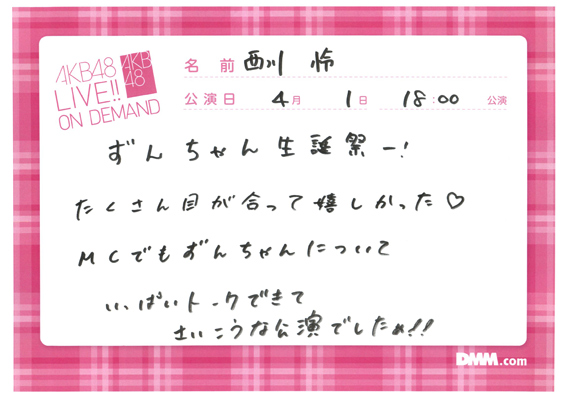 AKB48
LIVE!!
ON DEMAND
AKB
48
名 前 西川 怜
公演日 4月 1日 18:00 公演
ずんちゃん生誕祭ー!
たくさん目が合って嬉しかった♡
MCでもずんちゃんについて
いっぱいトークできて
さいこうな公演でしたぁ!!
DMM.com